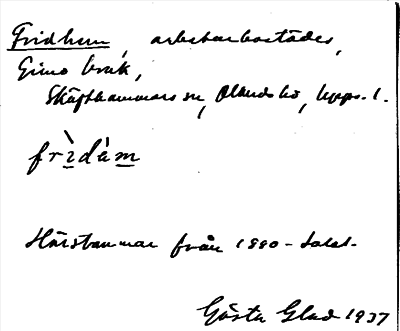 Fridhem, arbetarbostäder,
Gimo bruk,
Skäfthammars sn, Olands hd, Upps. l.
frìdám
Härstammar från 1880-talet.
Gösta Glad 1937